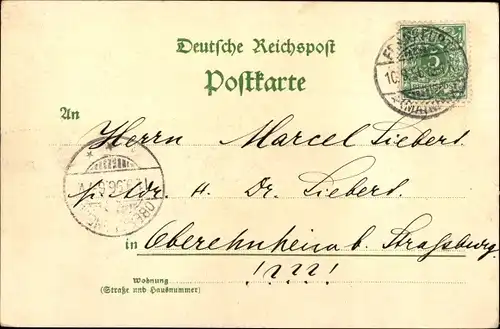 Deutsche Reichspost
Postkarte
An
Herrn Marcel Siebert
p. Adr. H. Dr. Siebert.
in Oberehnheim b. Straßburg.
!???!
Wohnung
(Straße und Hausnummer)